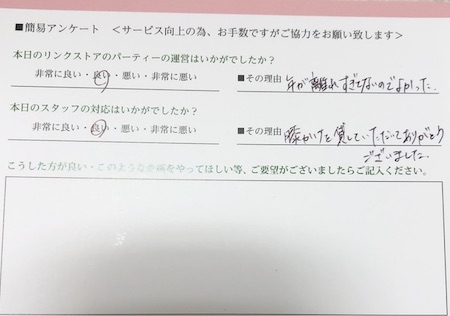 ■簡易アンケート <サービス向上の為、お手数ですがご協力をお願い致します>
本日のリンクストアのパーティーの運営はいかがでしたか?
非常に良い・良い・悪い・非常に悪い ■その理由 年が離れすぎてないのでよかった。
本日のスタッフの対応はいかがでしたか?
非常に良い・良い・悪い・非常に悪い ■その理由 膝かけを貸していただいてありがとう
ございました。
こうした方が良い・このような企画をやってほしい等、ご要望がございましたらご記入ください。